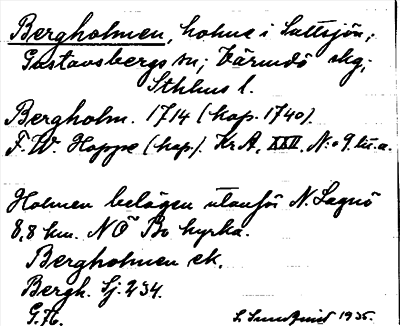 Bergholmen, holme i Saltsjön,
Gustavsbergs sn; Värmdö skg,
Sthlms l.
Bergholm. 1714 (kop. 1740).
F. W. Hoppe (kop). Kr A, XXII, N:o 9 lit. a.
Holmen belägen utanför N. Lagnö
8,8 km. NÖ Bo kyrka.
Bergholmen ek.
Bergh. Sj. 234.
G. A.
S. Sundquist 1935.